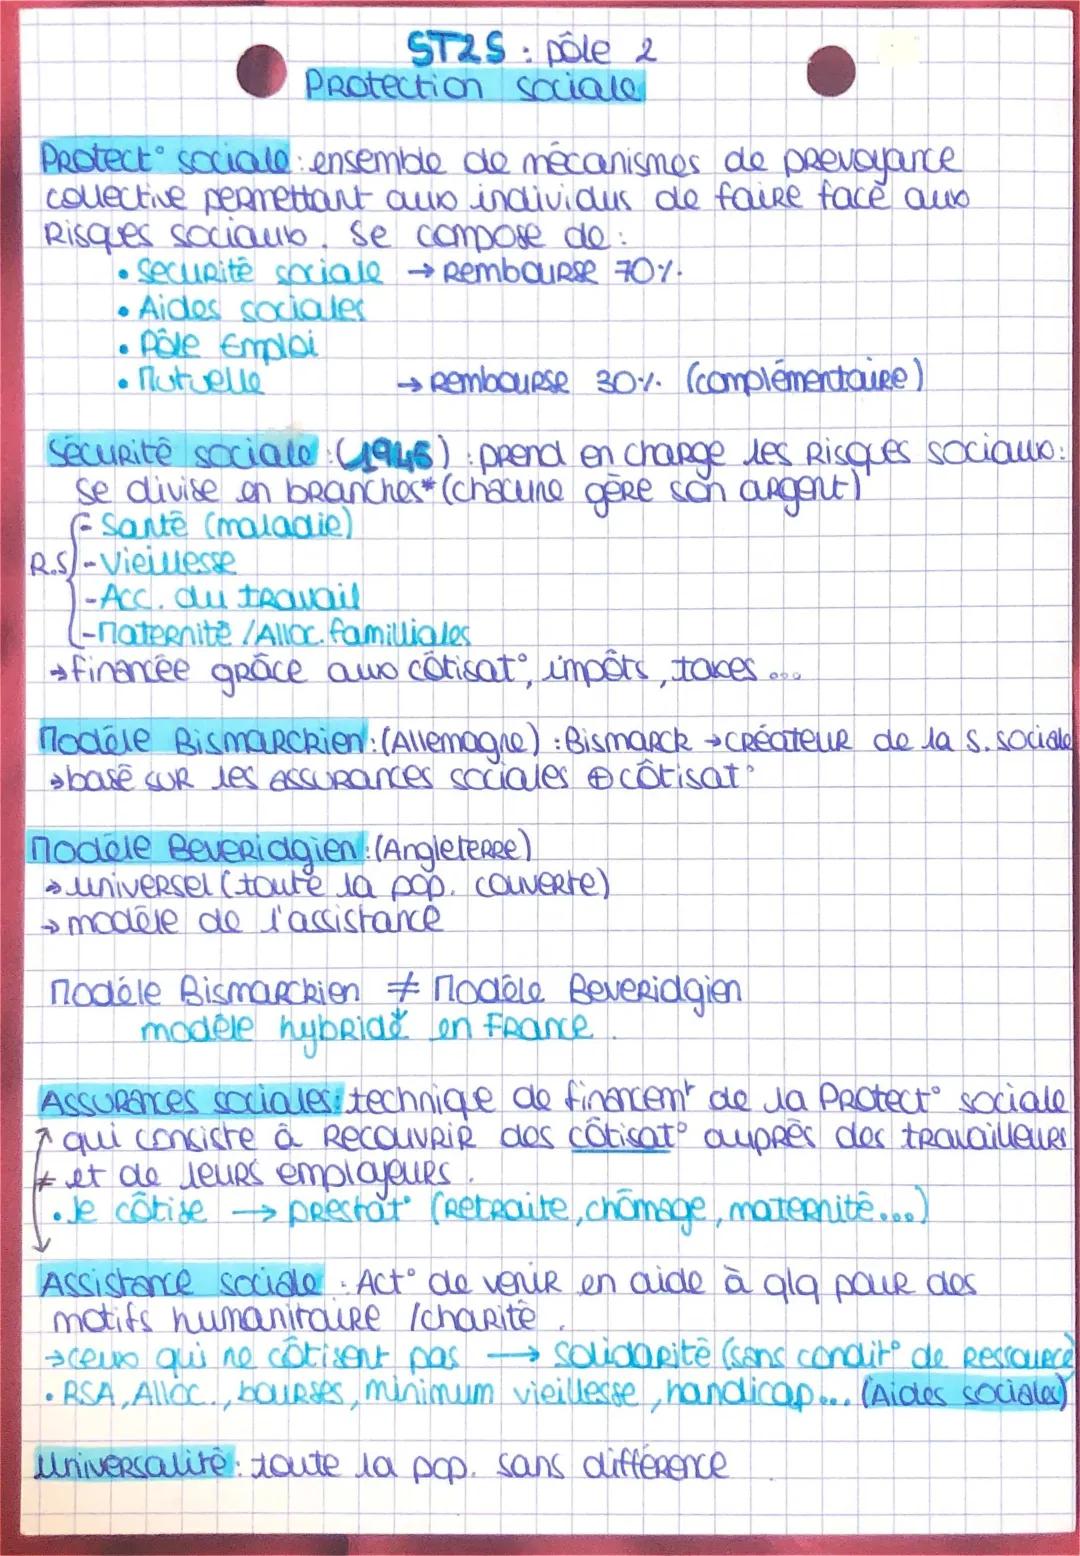 ST2S : pôle 2
Protection sociale
Protect° sociale : ensemble de mécanismes de prévoyance
collective permettant aux individus de faire face aux
Risques sociaux. Se compose de :
• Sécurité sociale → Rembourse 70%.
• Aides sociales
• Pôle Emploi
• Mutuelle → Rembourse 30%. (complémentaire)
Sécurité sociale : (1945) : prend en charge les Risques sociaux :
se divise en branches* (chacune gère son argent)
- Santé (maladie)
R.S - Vieillesse
- Acc. du travail
- Maternité / Alloc. familliales
→ financée grâce aux côtisat°, impôts, taxes ...
Modèle Bismarckien : (Allemagne) : Bismarck → créateur de la S. sociale
→ basé sur les assurances sociales ⊕ côtisat°
Modèle Beveridgien : (Angleterre)
→ universel (toute la pop. couverte)
→ modèle de l'assistance
Modèle Bismarckien ≠ Modèle Beveridgien
modèle hybride* en France.
Assurances sociales : technique de financemt de la Protect° sociale
qui consiste à Recouvrir des côtisat° auprès des travailleurs
≠ et de leurs employeurs.
• Je côtise → prestat° (Retraite, chômage, maternité...)
Assistance sociale : Act° de venir en aide à qlq pour des
motifs humanitaire / charité.
→ ceux qui ne côtisent pas → solidarité (sans condit° de Ressource
• RSA, Alloc., bourses, minimum vieillesse, handicap... (Aides sociales)
Universalité : toute la pop. sans différence